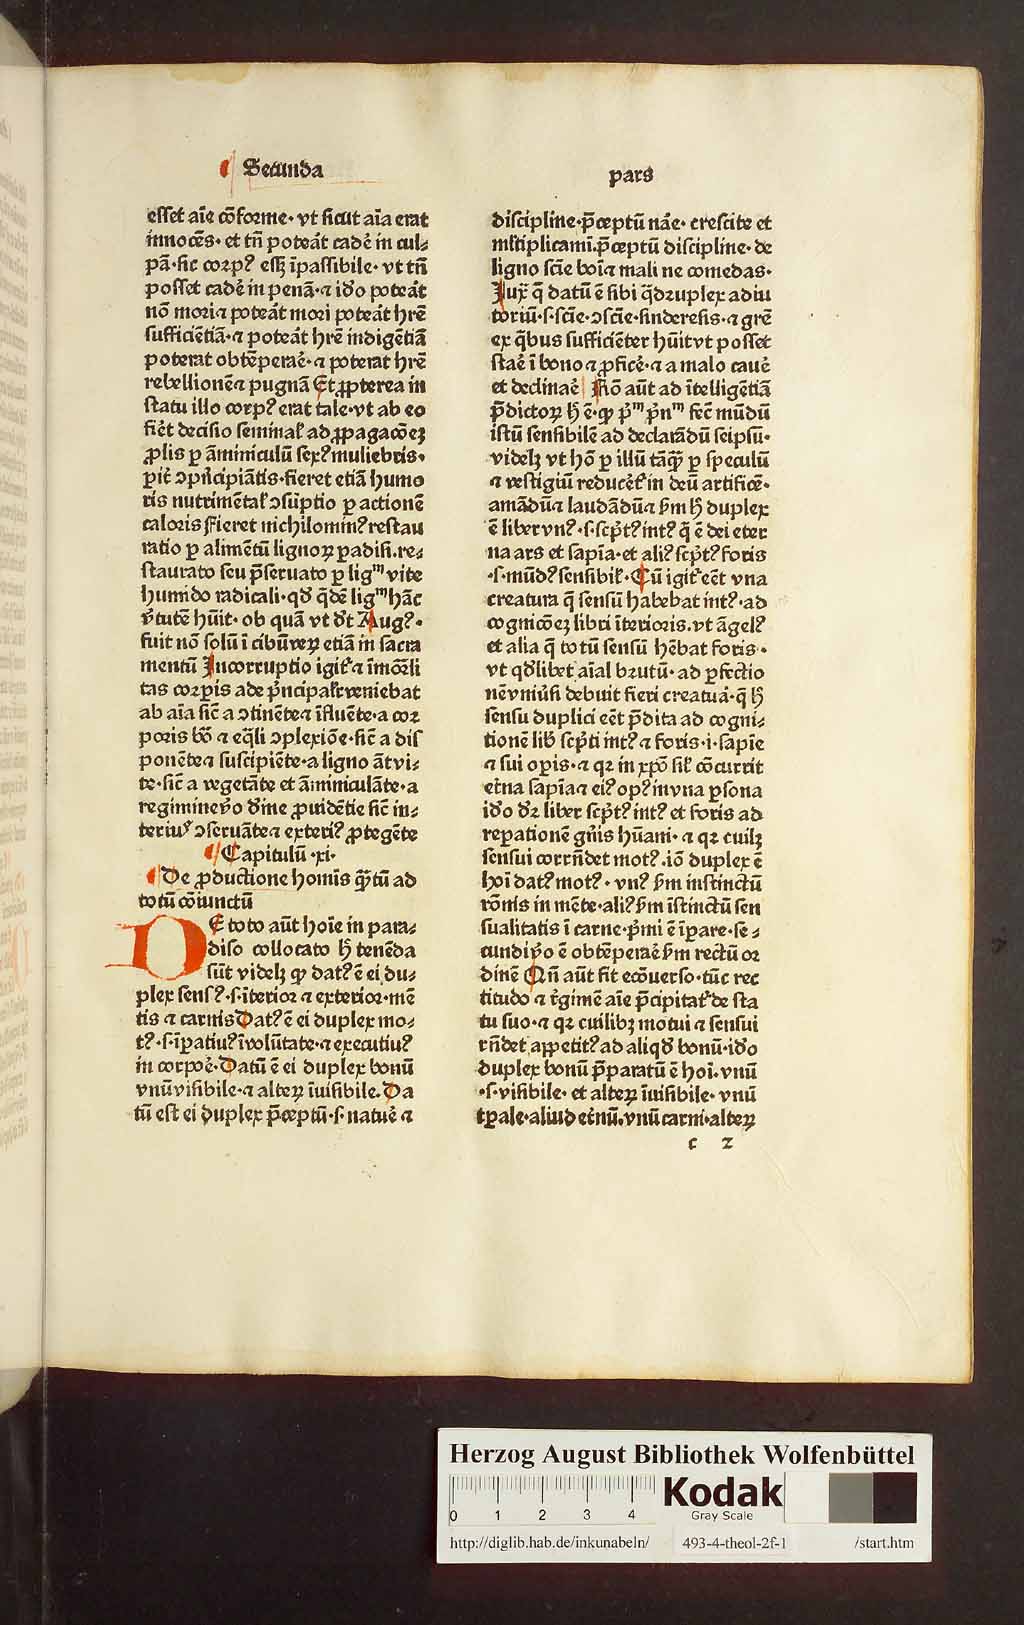 Secunda
esset aīe cōforme· vt sicut aīa erat
innocēs· et tn̄ poteāt cadē in cul⸗
pā·sic corpꝰ essꝫ īpassibile· vt tn̄
posset cadē in penā·⁊ iđo poteāt
nō mori⁊ poteāt mori poteāt hr̄e
sufficiētiā·⁊ poteāt hr̄e indigētiā
poterat obtēperaē·⁊ poterat hr̄e
rebellionē⁊ pugnā Et ꝓpterea in
statu illo corpꝰ erat tale·vt ab eo
fiēt decisio seminaƚ ad ꝓpagacōeꝫ
ꝓlis ꝑ āminiculū sexꝰ muliebris·
ꝑit̄ ↄpn̄cipiātis·fieret etiā humo
ris nutrimētaƚ ↄsūptio ꝑ actionē
caloris fieret nichilominꝰ restau
ratio ꝑ alimētū lignoꝝ ꝑadisi.re⸗
staurato seu p̄seruato ꝑ ligᵐ vite
humido radicali·qđ q̄dē ligᵐ hāc
v̄tutē hūit· ob quā vt đt Augꝰ·
fuit nō solū ī cibū veꝝ etiā in sacra
mentū Incorruptio igit̄ ⁊ īmōrli
tas corꝑis ade pn̄cipaƚr veniebat
ab aīa sic̄ a ↄtinēte⁊ īfluēte·a cor
poris bō ⁊ eq̄li ↄplexiōe·sic̄ a dis
ponēte⁊ suscipiēte·a ligno āt vi⸗
te·sic̄ a vegetāte et āminiculāte·a
regimine v̄o đine ꝓuidētie sic̄ in⸗
teriuꝰ ↄseruāte⁊ exteriꝰ ꝓtegēte
Capitulū ·xi·
De ꝓductione homīs qꝫtū ad
totū cōiunctū
DE toto aūt hoīe in para⸗
diso collocato hꝫ tenēda
sūt videlꝫ ꝙ datꝰ ē ei du⸗
plex sensꝰ·s·īterior ⁊ exterior·mē
tis ⁊ carnis Datꝰ ē ei duplex mo⸗
tꝰ·s·īpatiuꝰ ī volūtate·⁊ executiuꝰ
in corpoē·Datū ē ei duplex bonū
vnū visibile·⁊ alteꝝ īuisibile.Da
tū est ei duplex p̄ceptū·s·natuē ⁊
pars
discipline·p̄ceptū nāe· crescite et
mƚtiplicamī.p̄ceptū discipline· de
ligno scīe boī⁊ mali ne comedas·
Iux̄ q̄ datū ē sibi q̄druplex adiu
toriū·s·scīe·ↄscīe·sinderesis·⁊ gr̄e
ex q̄bus sufficiēter hūit vt posset
staē ī bono ⁊ ꝓficē·⁊ a malo cauē
et declinaē Rō aūt ad ītelligētiā
p̄dictoꝝ hꝫ ē·ꝙ pᵐ pn̄ᵐ fec̄ mūdū
istū sensibilē ad declarādū seipsū·
videlꝫ vt hō ꝑ illū tāqꝫ ꝑ speculū
⁊ vestigiū reducēt̄ in deū artificē·
amādū⁊ laudādū⁊ s̄m hꝫ duplex
ē liber vnꝰ ·s·scp̄tꝰ intꝰ q̄ ē dei eter
na ars et sapīa·et aliꝰ scp̄tꝰ foris
·s·mūdꝰ sensibiƚ·Cū igit̄ eēt vna
creatura q̄ sensū habebat intꝰ·ad
cognicōeꝫ libri īterioris.vt āgelꝰ
et alia q̄ totū sensū hēbat foris·
vt qđlibet aīal brutū· ad ꝑfectio
nē vniūsi debuit fieri creatuā·q̄ hꝫ
sensu duplici eēt p̄dita ad cogni⸗
tionē lib̄ scp̄ti intꝰ ⁊ foris·i·sapīe
⁊ sui oꝑis·⁊ qꝛ in xp̄o siƚ cōcurrit
et̄na sapīa⁊ eiꝰ opꝰ in vna ꝑsona
iđo đꝛ liber scp̄tꝰ intꝰ et foris ad
reꝑationē gn̄is hūani· ⁊ qꝛ cuilꝫ
sensui corrn̄det motꝰ.iō duplex ē
hoī datꝰ motꝰ· vnꝰ s̄m instinctū
rōnis in mēte·aliꝰ s̄m īstinctū sen
sualitatis ī carne·pⁱmi ē īpare·se⸗
cundi v̄o ē obtēperaē s̄m rectū or
dinē Qn̄ aūt fit ecōuerso·tūc rec
titudo ⁊ r̄gimē aīe p̄cipitat̄ de sta
tu suo·⁊ qꝛ cuilibꝫ motui ⁊ sensui
rn̄det appetitꝰ ad aliqđ bonū·iđo
duplex bonū p̄paratū ē hoī· vnū
·s·visibile· et alteꝝ īuisibile· vnū
tꝑale·aliud et̄nū.vnū carni·alteꝝ
c 2
Herzog August Bibliothek Wolfenbüttel
0 1 2 3 4
Kodak
Gray Scale
http://diglib.hab.de/inkunabeln/ 493-4-theol-2f-1 /start.htm